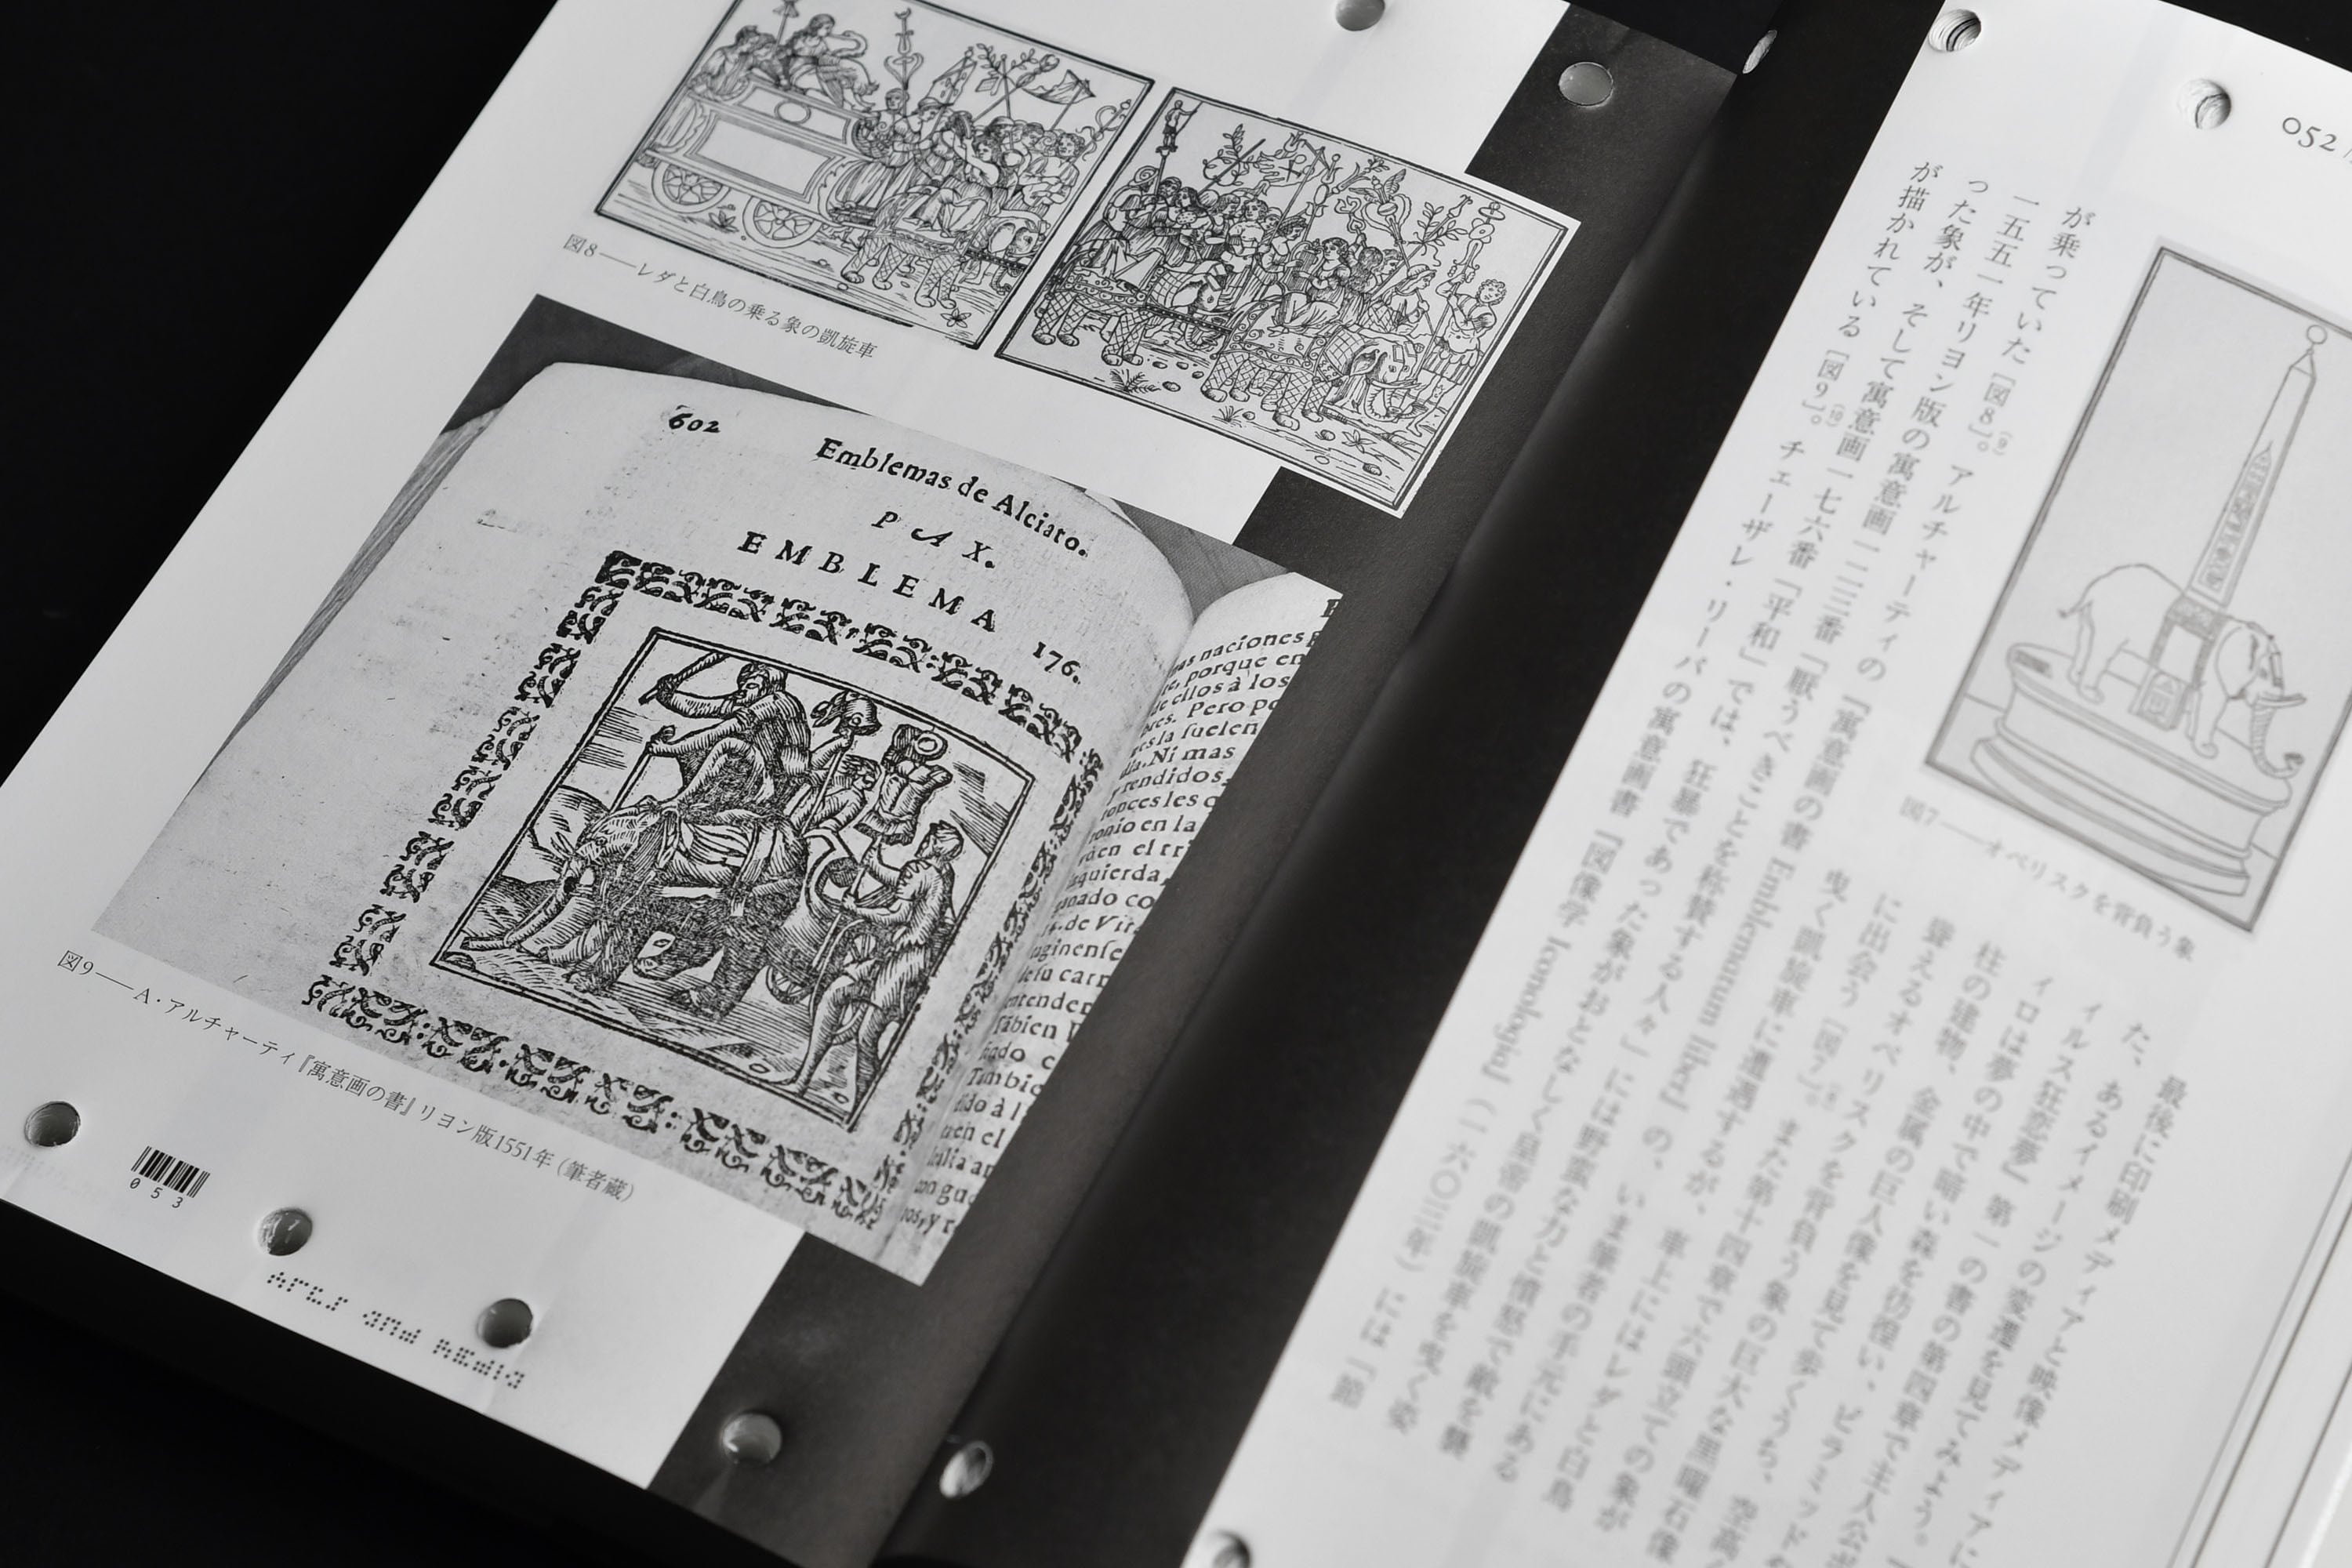 052
図7——オベリスクを背負う象
最後に印刷メディアと映像メディアに
た、あるイメージの変遷を見てみよう。
イルス狂恋夢』第一の書の第四章で主人公
イロは夢の中で暗い森を彷徨い、ピラミッド
柱の建物、金属の巨人像を見て歩くうち、空高
聳えるオベリスクを背負う象の巨大な黒曜石像
に出会う［図7］。また第十四章で六頭立ての象が
曳く凱旋車に遭遇するが、車上にはレダと白鳥
が乗っていた［図8］。(9) アルチャーティの『寓意画の書 Emblematum liber』の、いま筆者の手元にある
一五五一年リヨン版の寓意画一二三番「厭うべきことを称賛する人々」には野蛮な力と憤怒で敵を襲
った象が、そして寓意画一七六番「平和」では、狂暴であった象がおとなしく皇帝の凱旋車を曳く姿
が描かれている［図9］。(10) チェーザレ・リーパの寓意画書『図像学 Iconologia』（一六〇三年）には「節
図8——レダと白鳥の乗る象の凱旋車
602
Emblemas de Alciato.
PAX.
EMBLEMA 176.
naciones
porque en
ellos à los
Pero
la suelen
Ni mas
rendidos,
les
en la
en el
quierda,
co
de
carr
entender
Tambien
Tambie
à
en el
図9——A・アルチャーティ『寓意画の書』リヨン版1551年（筆者蔵）
053